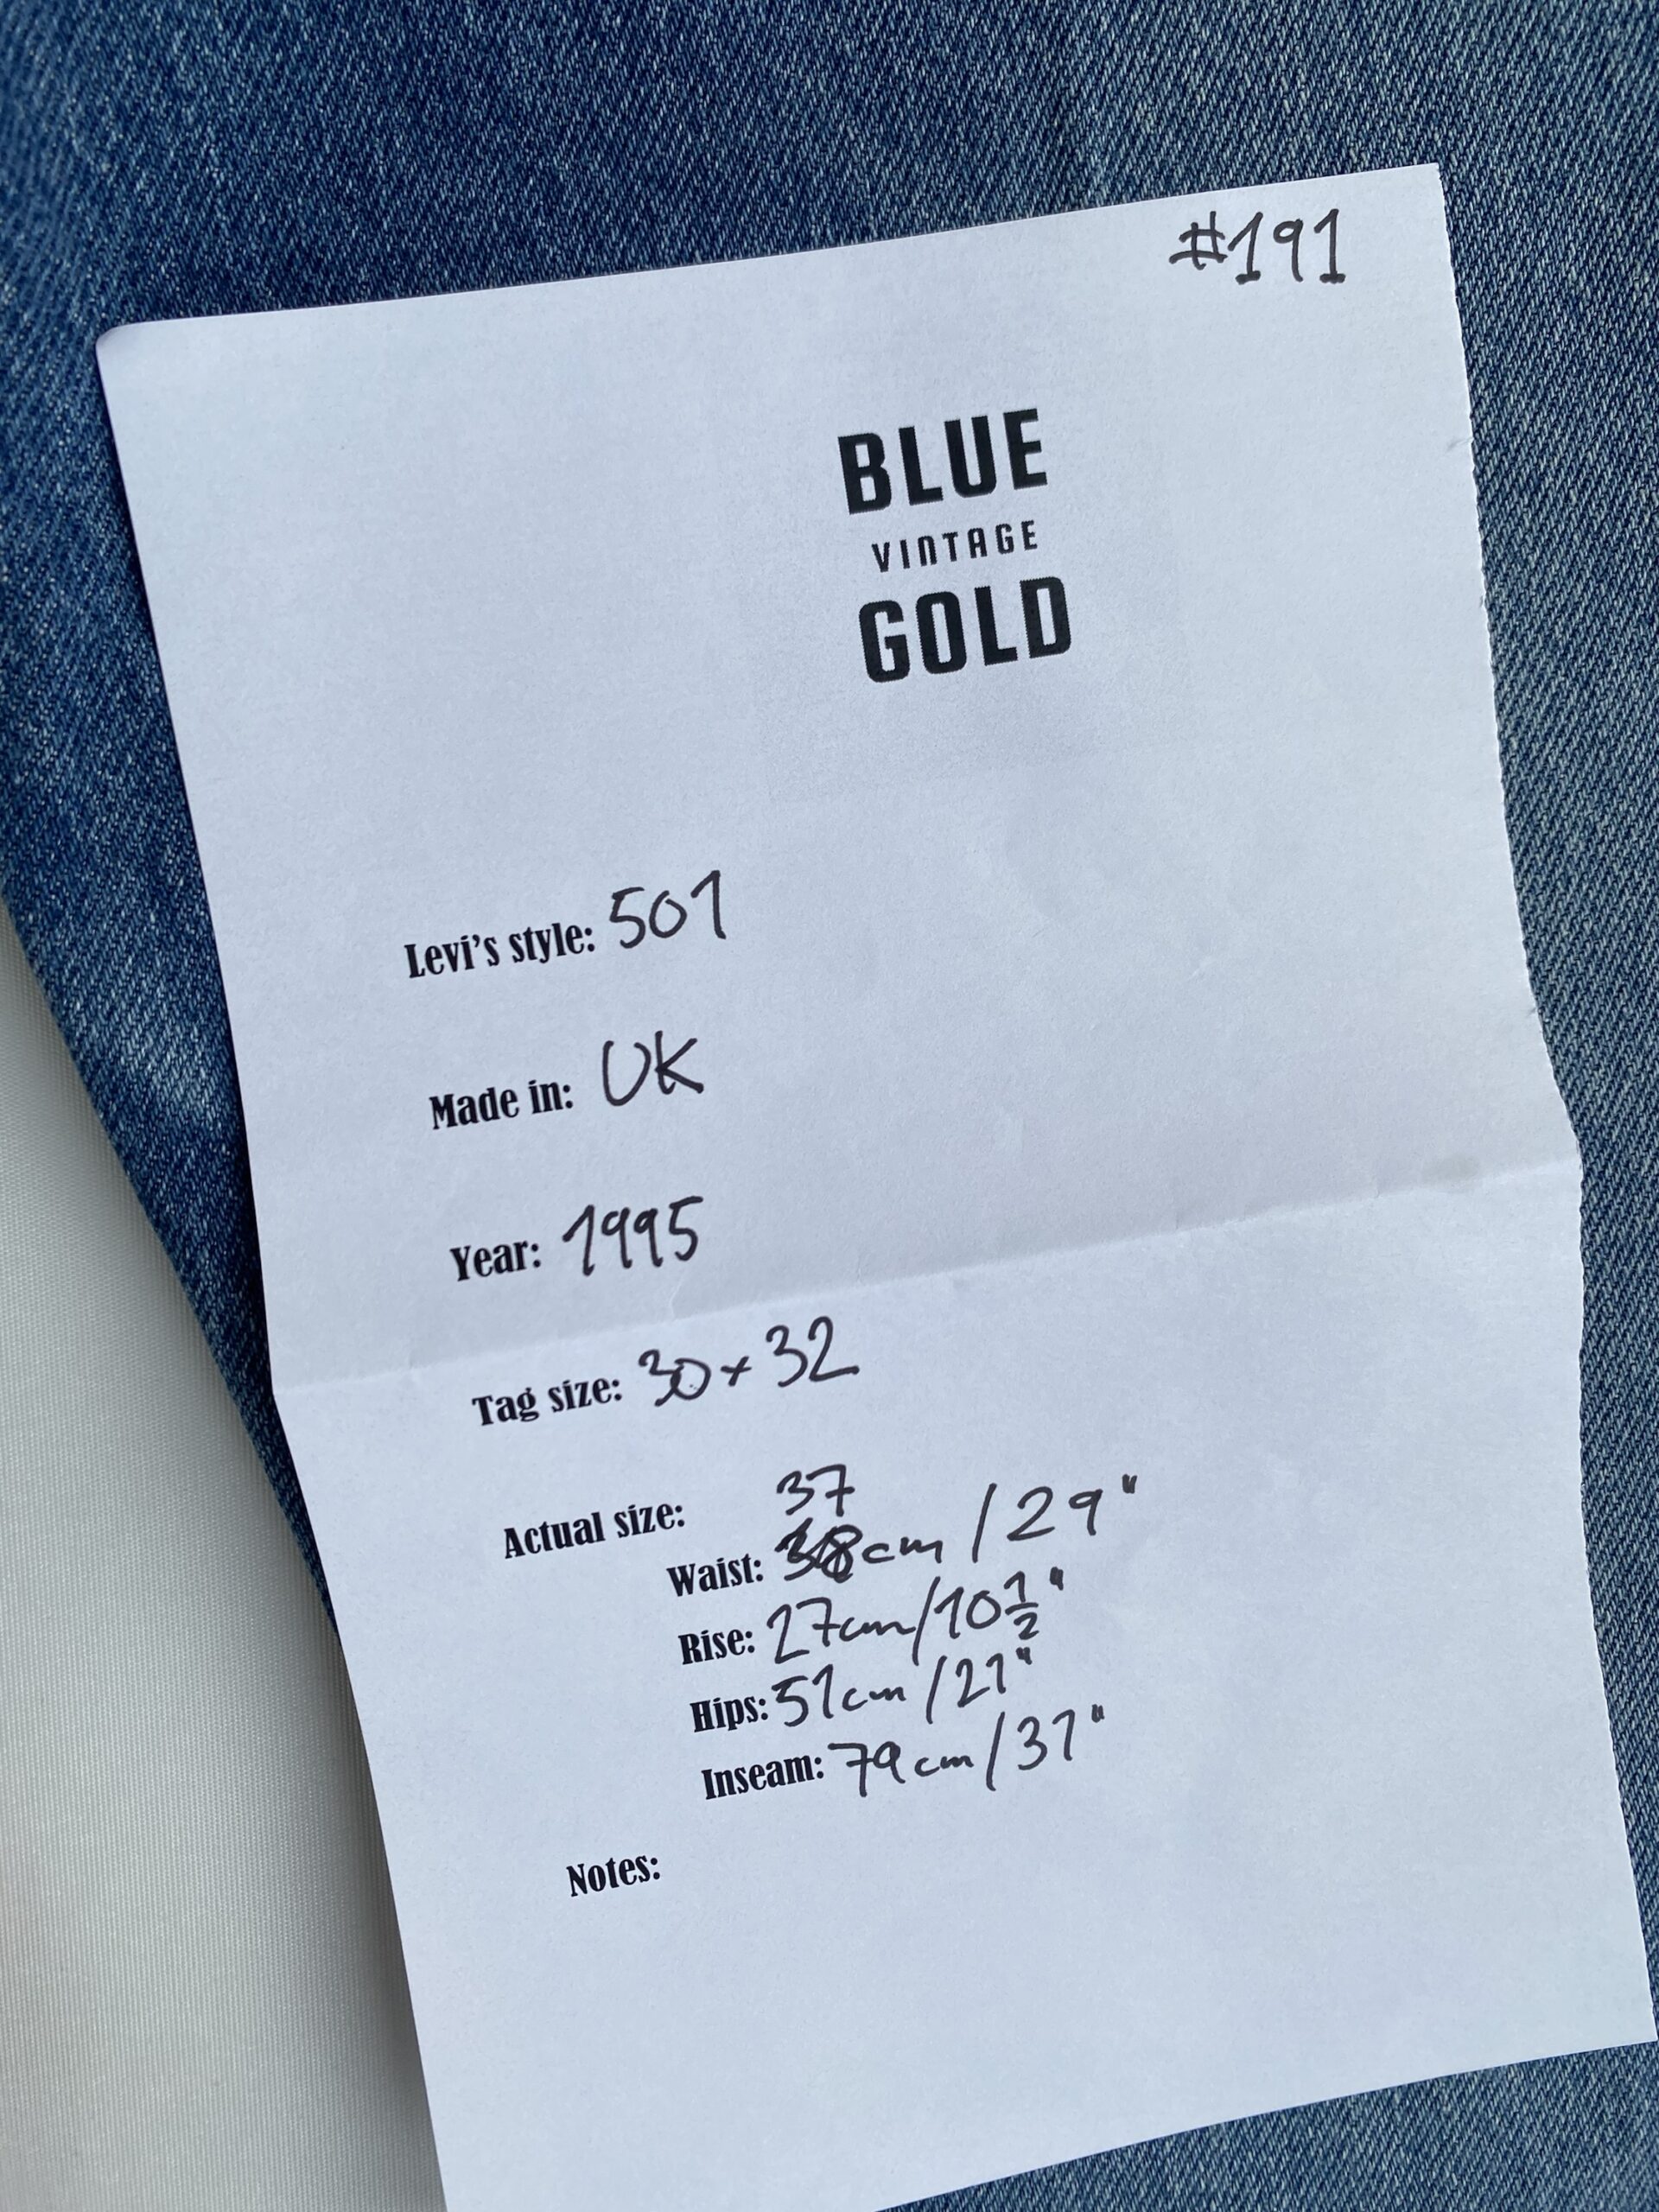 #191
BLUE
VINTAGE
GOLD
Levi's style: 501
Made in: UK
Year: 1995
Tag size: 30 x 32
Actual size:
37
Waist: 38cm / 29"
Rise: 27cm/10 1/2"
Hips: 51cm /21"
Inseam: 79cm/31"
Notes: